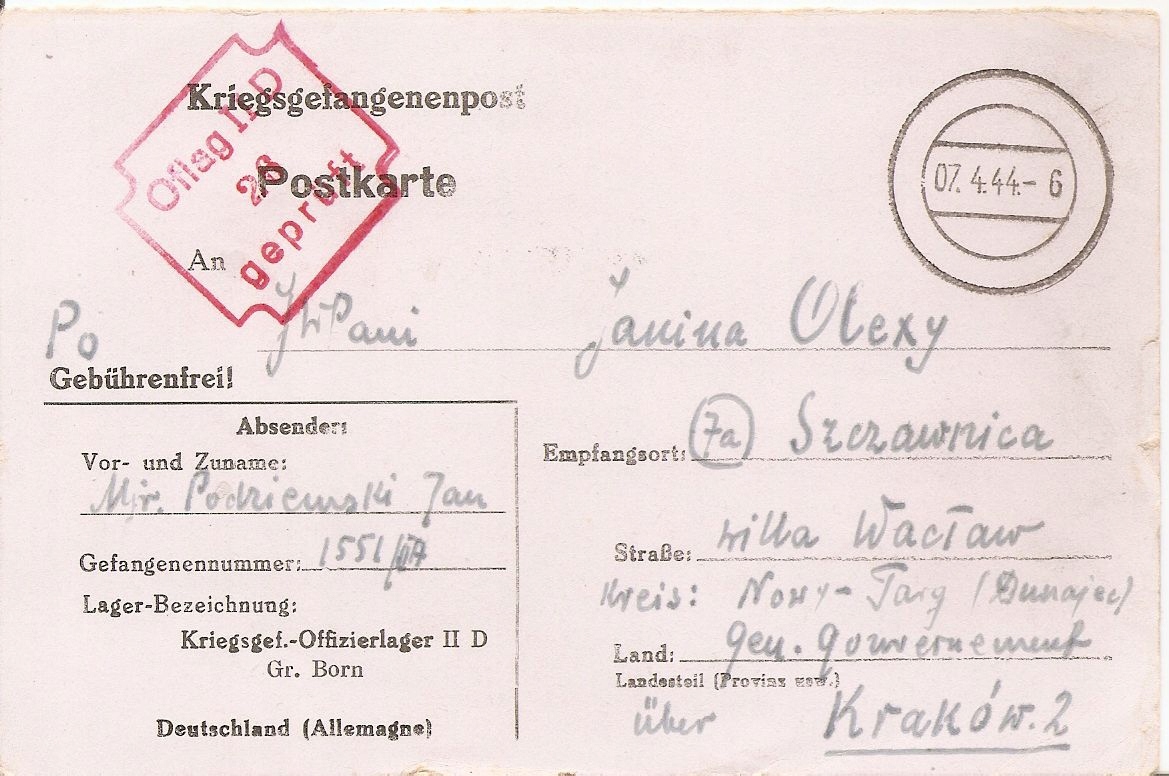 Kriegsgefangenenpost
Oflag II D
28
geprüft
Postkarte
07.4.44.- 6
An
JWPani Janina Olexy
Po
Gebührenfrei!
Absender:
Vor- und Zuname:
Mjr. Podziemski Jan
Gefangenennummer: 1551/
Lager-Bezeichnung:
Kriegsgef.-Offizierlager II D
Gr. Born
Deutschland (Allemagne)
Empfangsort: 7a Szczawnica
Straße: willa Wacław
Kreis: Nowy-Targ (Dunajec)
Land: Gen. Gouvernement
Landesteil (Provinz usw.)
über Kraków.2